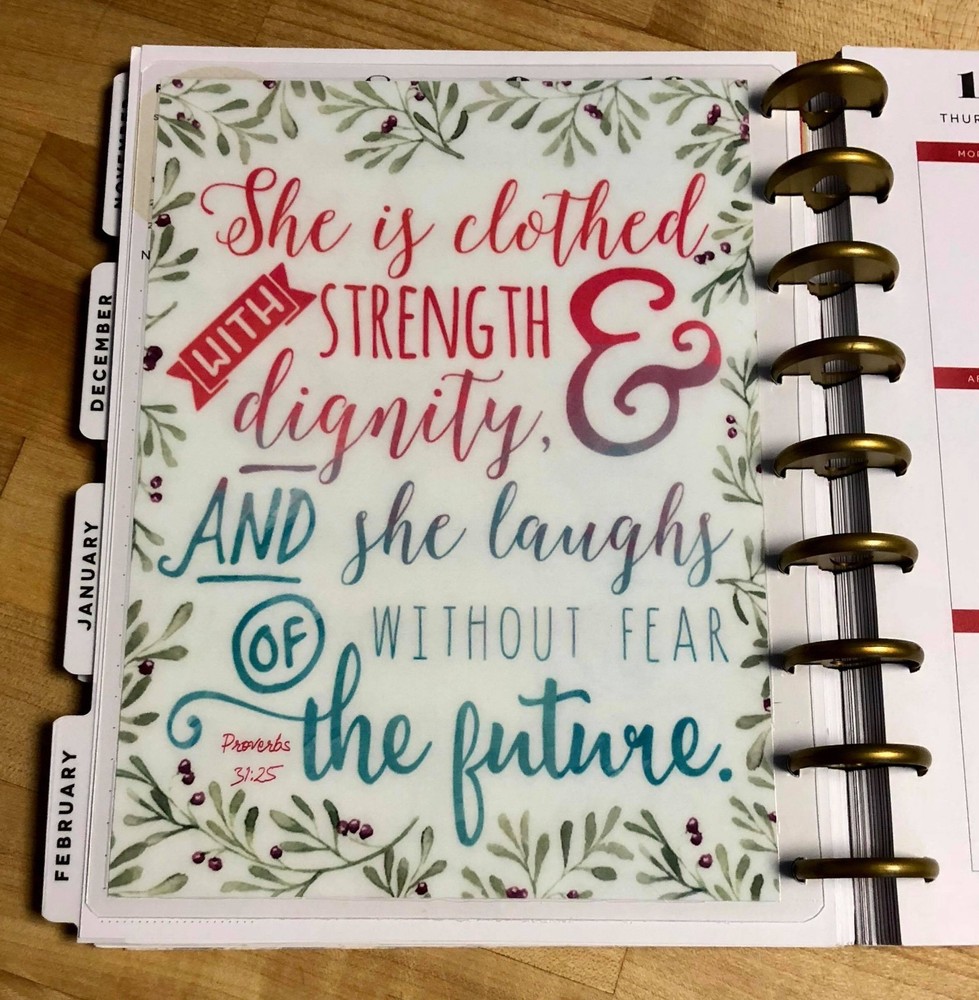 She is clothed
WITH STRENGTH &
dignity,
AND she laughs
OF WITHOUT FEAR
the future.
Proverbs
31:25
NOVEMBER
DECEMBER
JANUARY
FEBRUARY
N
1
THUR
MO